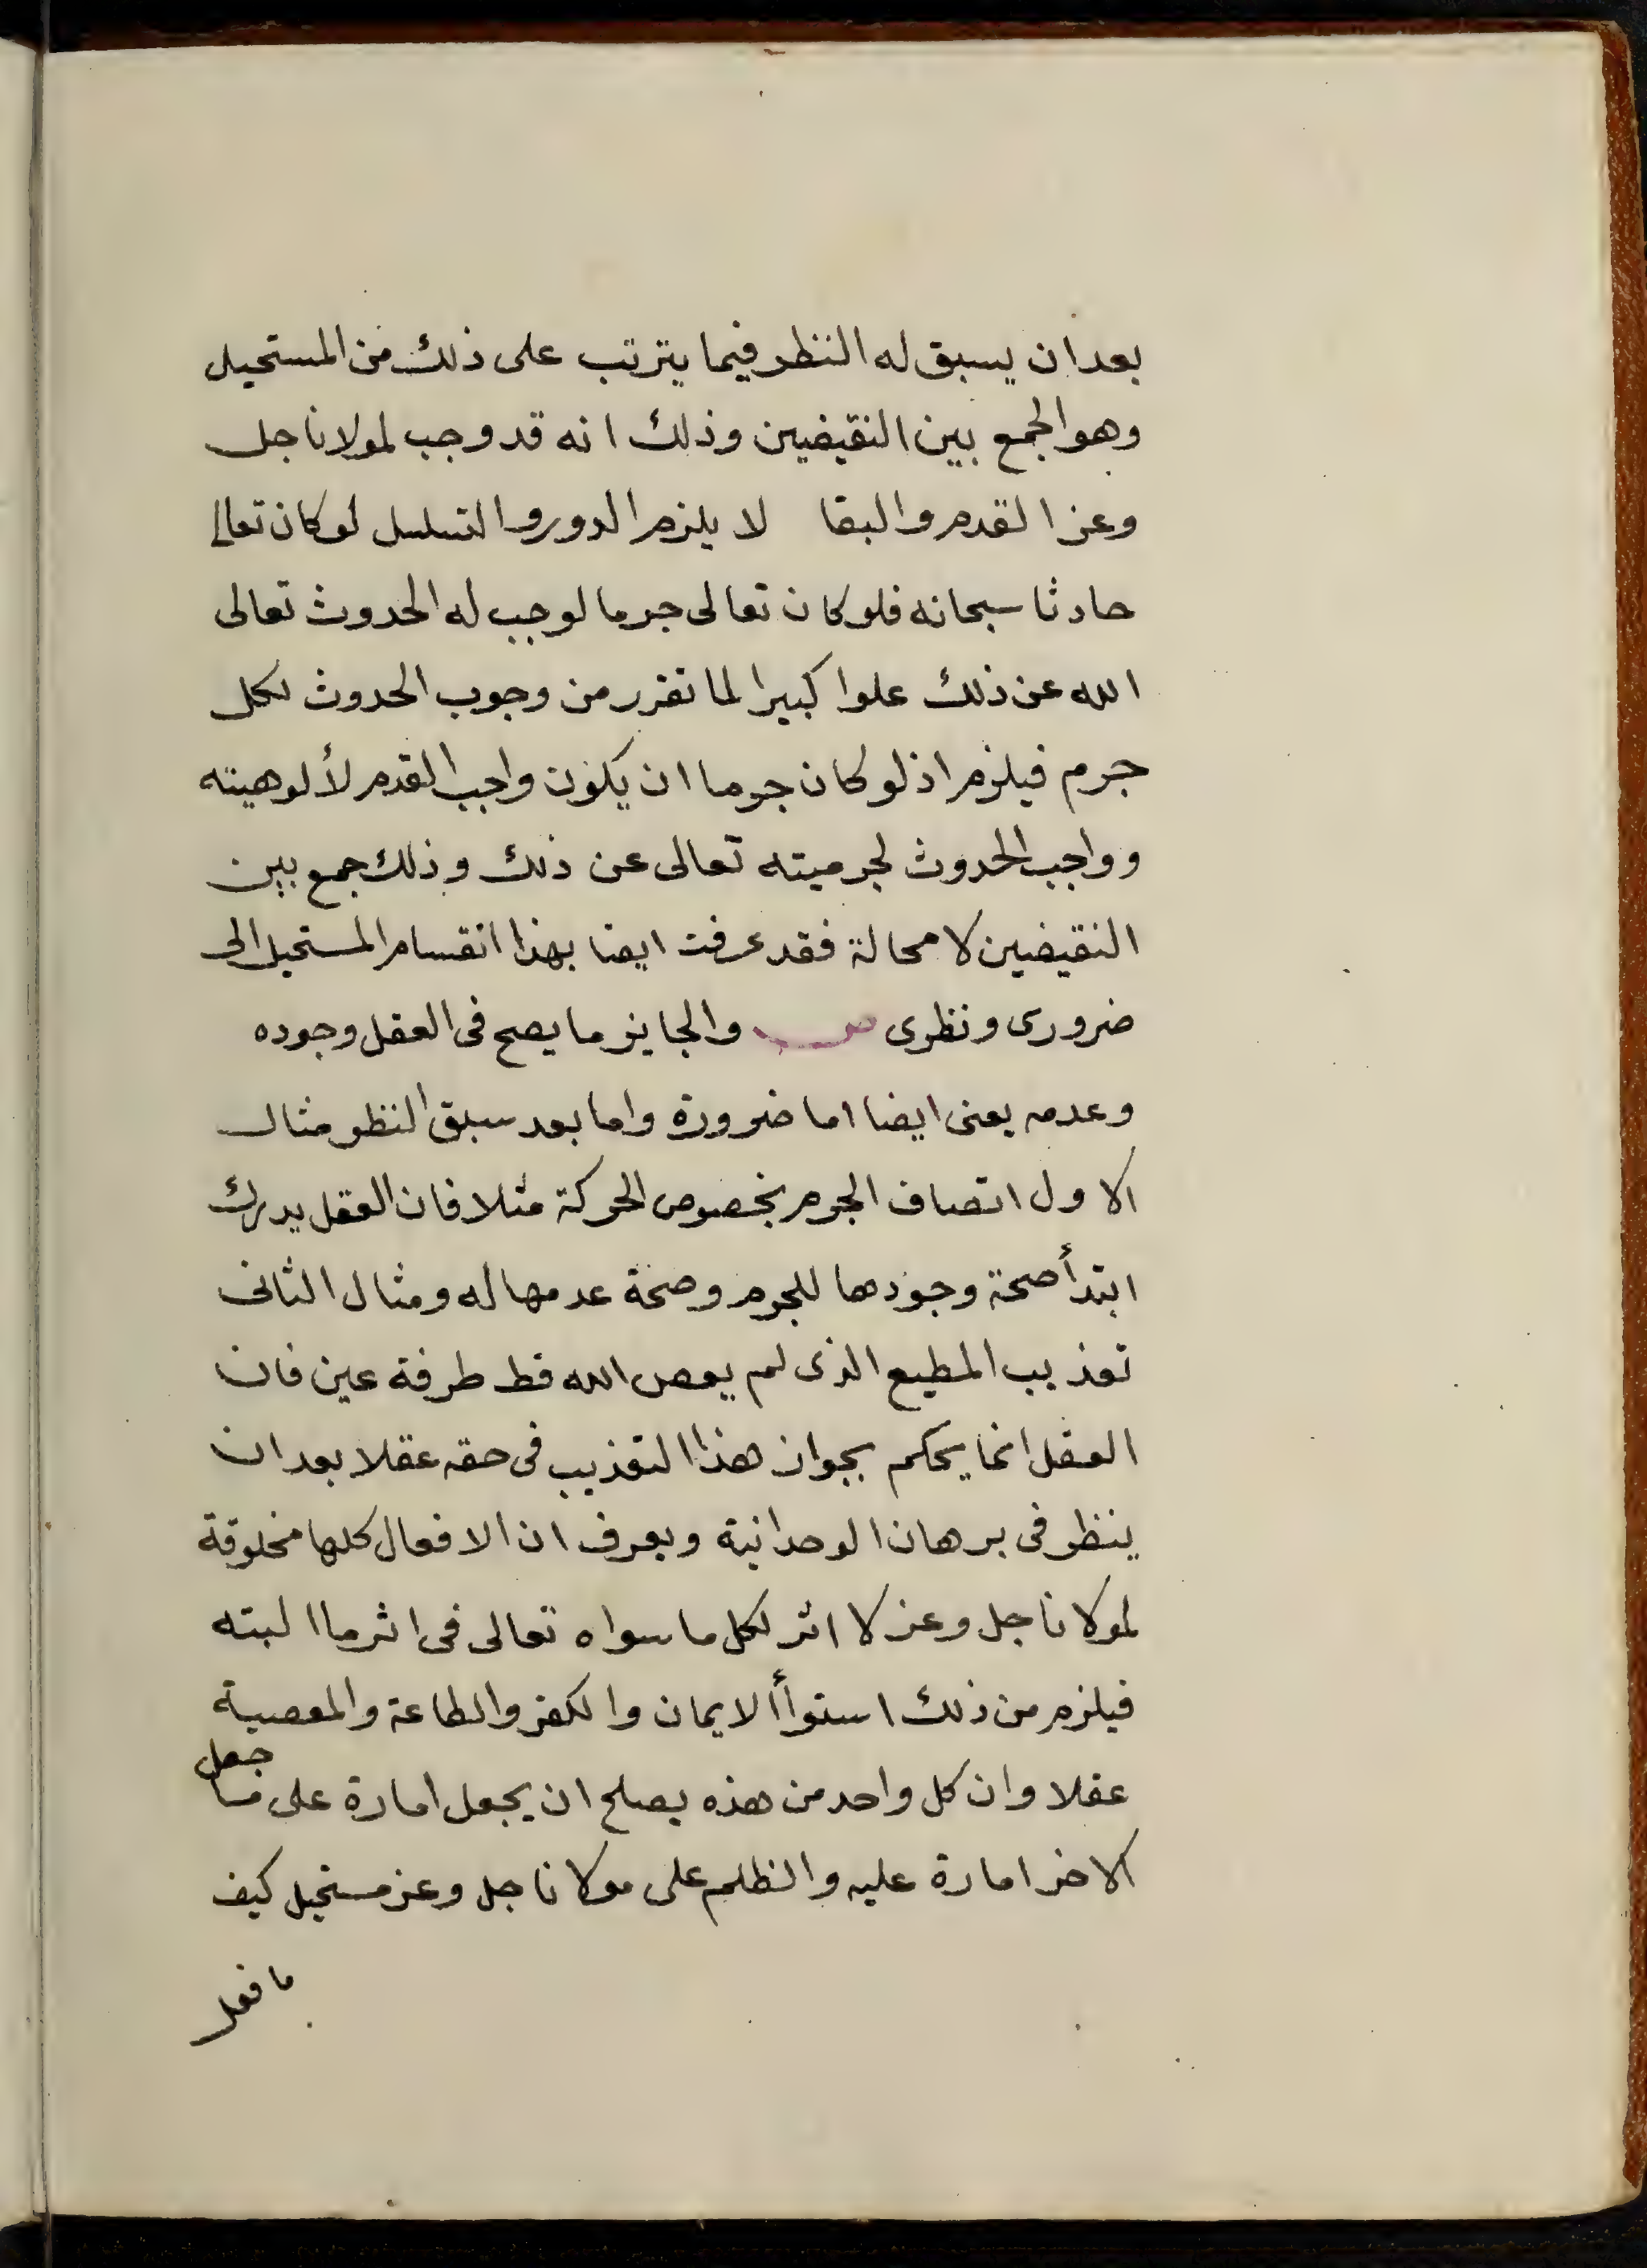 بعد ان يسبق له النظر فيما يترتب على ذلك من المستحيل
وهو الجمع بين النقيضين وذلك انه قد وجب لمولانا جل
وعز القدم والبقا لا يلزم الدور والتسلسل لو كان تعالى
حادثا سبحانه فلو كان تعالى جرما لوجب له الحدوث تعالى
الله عن ذلك علوا كبيرا لما تقرر من وجوب الحدوث لكل
جرم فيلزم اذ لو كان جرما ان يكون واجب القدم لألوهيته
وواجب الحدوث لجرميته تعالى عن ذلك وذلك جمع بين
النقيضين لا محالة فقد عرفت ايضا بهذا انقسام المستحيل الى
ضرورى ونظرى ص والجايز ما يصح فى العقل وجوده
وعدمه يعنى ايضا اما ضرورة واما بعد سبق النظر مثال
الاول اتصاف الجرم بخصوص الحركة مثلا فان العقل يدرك
ابتدأ صحة وجودها للجرم وصحة عدمها له ومثال الثانى
تعذيب المطيع الذى لم يعص الله قط طرفة عين فان
العقل انما يحكم بجواز هذا التعذيب فى حقه عقلا بعد ان
ينظر فى برهان الوحدانية ويعرف ان الافعال كلها مخلوقة
لمولانا جل وعز لا اثر لكل ما سواه تعالى فى اثر ما البته
فيلزم من ذلك استوأ الايمان والكفر والطاعة والمعصية
عقلا وان كل واحد من هذه يصلح ان يجعل امارة على ما جعل
الاخر امارة عليه والظلم على مولانا جل وعز مستحيل كيف
ما فعل